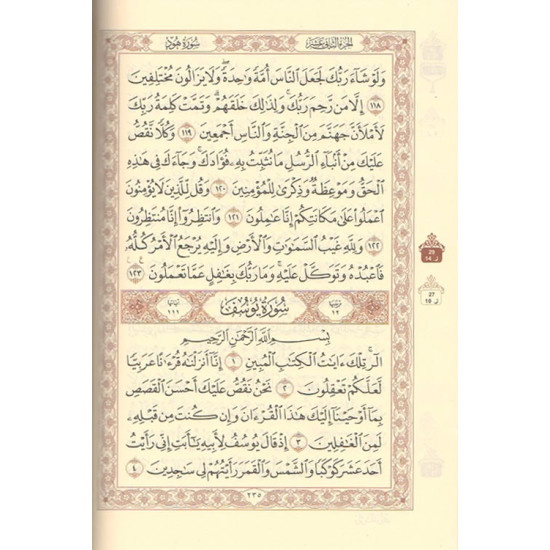 الجزء الثاني عشر سورة هود
ولو شاء ربك لجعل الناس أمة واحدة ولا يزالون مختلفين
١١٨ إلا من رحم ربك ولذلك خلقهم وتمت كلمة ربك
لأملأن جهنم من الجنة والناس أجمعين ١١٩ وكلا نقص
عليك من أنباء الرسل ما نثبت به فؤادك وجاءك في هذه
الحق وموعظة وذكرى للمؤمنين ١٢٠ وقل للذين لا يؤمنون
اعملوا على مكانتكم إنا عاملون ١٢١ وانتظروا إنا منتظرون
١٢٢ ولله غيب السماوات والأرض وإليه يرجع الأمر كله
فاعبده وتوكل عليه وما ربك بغافل عما تعملون ١٢٣
ترتيبها ١٢ سورة يوسف آياتها ١١١
بسم الله الرحمن الرحيم
الر تلك ءايات الكتاب المبين ١ إنا أنزلناه قرءانا عربيا
لعلكم تعقلون ٢ نحن نقص عليك أحسن القصص
بما أوحينا إليك هذا القرءان وإن كنت من قبله
لمن الغافلين ٣ إذ قال يوسف لأبيه يا أبت إني رأيت
أحد عشر كوكبا والشمس والقمر رأيتهم لي ساجدين ٤
٢٣٥
23
14 ر
27
10 ر